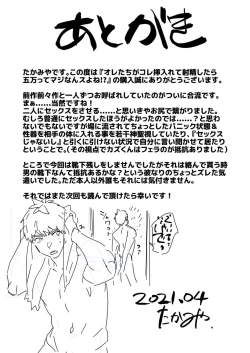 あとがき
たかみやです。この度は『オレたちがコレ挿入れて射精したら
五万ってマジなんスよね!?』の購入誠にありがとうございます。
前作前々作と一人ずつお呼ばれしていたのがついに合流です。
まぁ……当然ですね!
二人にセックスをさせる……と思いきやお尻で繋がりました。
むしろ普通にセックスしたほうがよかったのでは……?と思
わないでもないですが場に流されてちょっとしたパニック状態&
性器を相手の体に入れる事を若干神聖視していたり、『セック
スじゃないし』と引くに引けない状況で自分に言い聞かせて居たり
ということで。(その視点でカズくんはフェラのが抵抗ありました)
ところで今回は靴下残しをしませんでしたがそれは絡んで貰う時
男の靴下なんて抵抗あるかな?という彼なりのちょっとズレた気
遣いでした。ただ本人以外誰もそれには気付きません。
それではまた次回も読んで頂けたら幸いです!
2021.04
たかみや